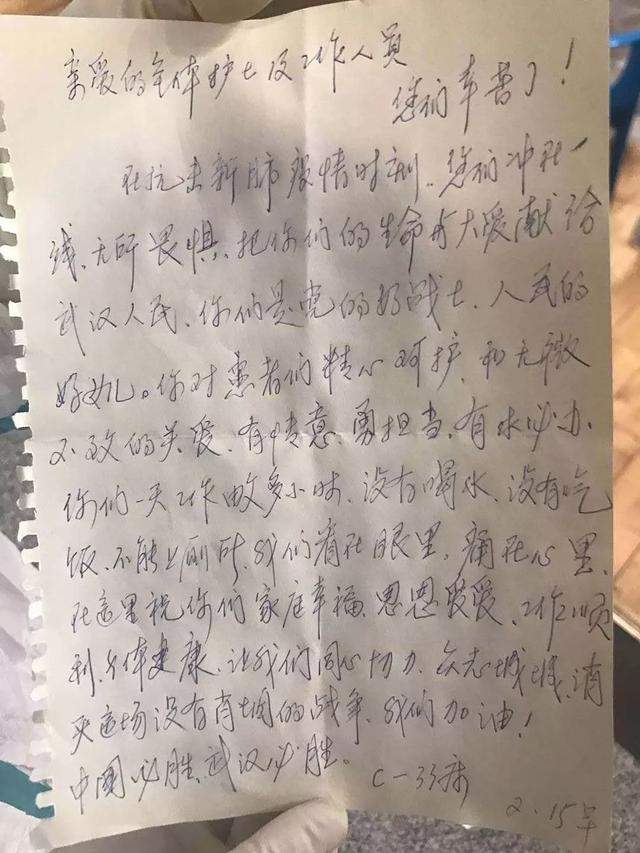 亲爱的全体护士及工作人员
您们辛苦了!
在抗击新肺疫情时刻、您们冲在一
线、无所畏惧、把你们的生命与大爱献给
武汉人民、你们是党的好战士、人民的
好儿。你对患者们精心呵护、和无微
不致的关爱、有情意、勇担当、有求必办、
你们一天工作多小时、没有喝水、没有吃
饭、不能上厕所、我们看在眼里、痛在心里、
在这里祝你们家庭幸福、恩恩爱爱、工作顺
利、身体健康、让我们同心协力、众志城城、消
灭这场没有肖烟的战争、我们加油!
中国必胜、武汉必胜。
C-33床
2.15早